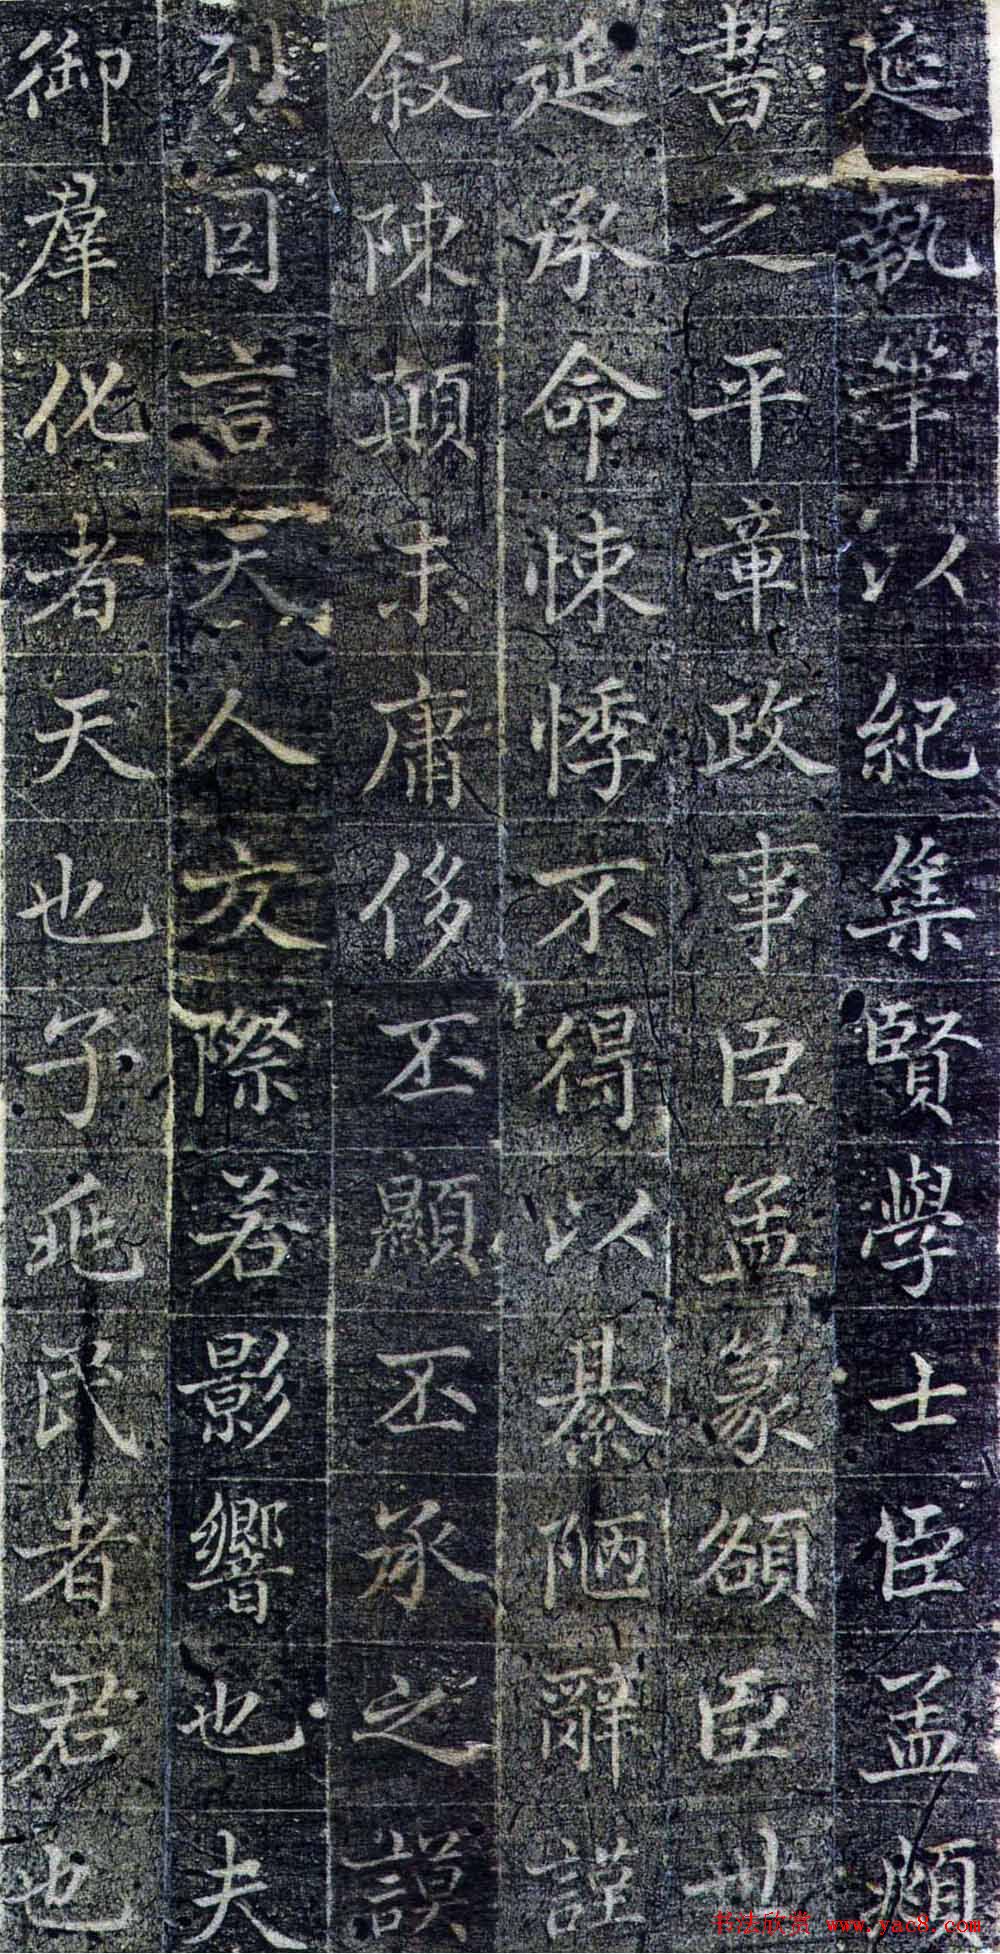 延執筆以紀集賢學士臣孟頫
書之平章政事臣孟篆額臣世
延承命悚悸不得以綦陋辭謹
叙陳顛末庸侈丕顯丕承之謨
烈因言天人交際若影響也夫
御羣化者天也子兆民者君也
书法欣赏 www.yac8.com